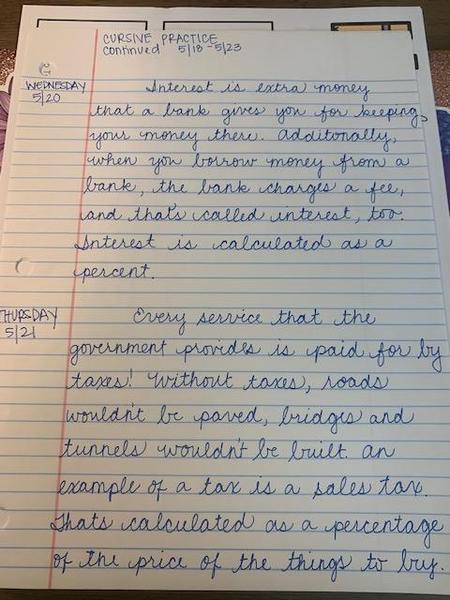 CURSIVE PRACTICE
continued 5/18-5/23
WEDNESDAY
5/20
Interest is extra money
that a bank gives you for keeping
your money there. Additonally,
when you borrow money from a
bank, the bank charges a fee,
and that's called interest, too.
Interest is calculated as a
percent.
THURSDAY
5/21
Every service that the
government provides is paid for by
taxes! Without taxes, roads
wouldn't be paved, bridges and
tunnels wouldn't be built. An
example of a tax is a sales tax.
Thats calculated as a percentage
of the price of the things to buy.